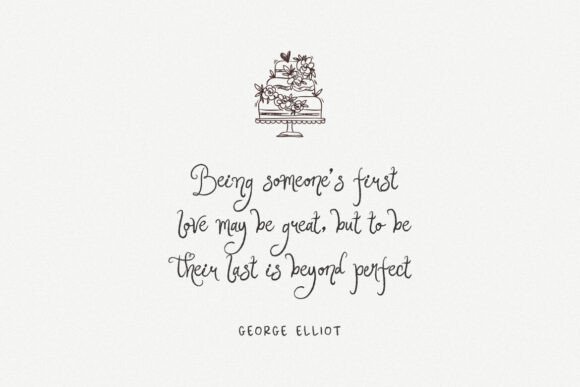 Being someone's first
love may be great, but to be
their last is beyond perfect
GEORGE ELLIOT